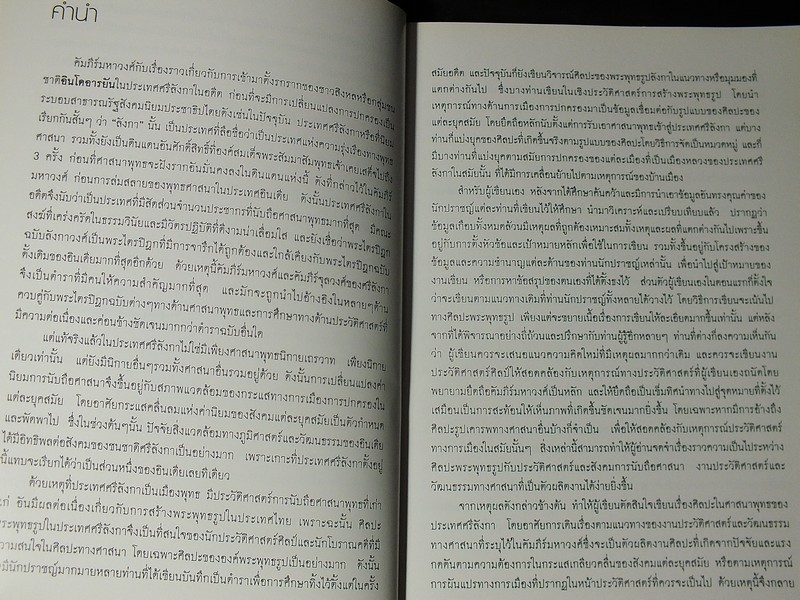 คำนำ
คัมภีร์มหาวงศ์กับเรื่องราวเกี่ยวกับการเข้ามาตั้งรกรากของชาวสิงหลหรือกลุ่มชน
ชาติอินโดอารยันในประเทศศรีลังกาในอดีต ก่อนที่จะมีการเปลี่ยนแปลงการปกครองเป็น
ระบอบสาธารณรัฐสังคมนิยมประชาธิปไตยดังเช่นในปัจจุบัน ประเทศศรีลังกาหรือที่นิยม
เรียกกันสั้นๆ ว่า "ลังกา" นั้น เป็นประเทศที่ลือชื่อว่าเป็นประเทศแห่งความรุ่งเรืองทางพุทธ
ศาสนา รวมทั้งยังเป็นดินแดนอันศักดิ์สิทธิ์ที่องค์สมเด็จพระสัมมาสัมพุทธเจ้าเคยเสด็จไปถึง
3 ครั้ง ก่อนที่ศาสนาพุทธจะฝังรากอันมั่นคงลงในดินแดนแห่งนี้ ดังที่กล่าวไว้ในคัมภีร์
มหาวงศ์ ก่อนการล่มสลายของพุทธศาสนาในประเทศอินเดีย ดังนั้นประเทศศรีลังกาใน
อดีตจึงนับว่าเป็นประเทศที่มีสัดส่วนจำนวนประชากรที่นับถือศาสนาพุทธมากที่สุด มีคณะ
สงฆ์ที่เคร่งครัดในธรรมวินัยและมีวัตรปฏิบัติที่ดีงามน่าเลื่อมใส และยังเชื่อว่าพระไตรปิฎก
ฉบับลังกาวงศ์เป็นพระไตรปิฎกที่มีการจารึกได้ถูกต้องและใกล้เคียงกับพระไตรปิฎกฉบับ
ดั้งเดิมของอินเดียมากที่สุดอีกด้วย ด้วยเหตุนี้คัมภีร์มหาวงศ์และคัมภีร์จุลวงศ์ของศรีลังกา
จึงเป็นตำราที่มีคนให้ความสำคัญมากที่สุด และมักจะถูกนำไปอ้างอิงในหลายๆด้าน
ควบคู่กับพระไตรปิฎกฉบับต่างๆทางด้านศาสนาพุทธและการศึกษาทางด้านประวัติศาสตร์ที่
มีความต่อเนื่องและค่อนข้างชัดเจนมากกว่าตำราฉบับอื่นใด
แต่แท้จริงแล้วในประเทศศรีลังกาไม่ใช่มีเพียงศาสนาพุทธนิกายเถรวาท เพียงนิกาย
เดียวเท่านั้น แต่ยังมีนิกายอื่นๆรวมทั้งศาสนาอื่นรวมอยู่ด้วย ดังนั้นการเปลี่ยนแปลงค่า
นิยมการนับถือศาสนาจึงขึ้นอยู่กับสภาพแวดล้อมของกระแสทางการเมืองการปกครองใน
แต่ละยุคสมัย โดยอาศัยกระแสคลื่นลมแห่งค่านิยมของสังคมแต่ละยุคสมัยเป็นตัวกำหนด
และพัดพาไป ซึ่งในช่วงต้นๆนั้น ปัจจัยสิ่งแวดล้อมทางภูมิศาสตร์และวัฒนธรรมของอินเดีย
ได้มีอิทธิพลต่อสังคมของชนชาติศรีลังกาเป็นอย่างมาก เพราะเกาะที่ประเทศศรีลังกาตั้งอยู่
นี้แทบจะเรียกได้ว่าเป็นส่วนหนึ่งของอินเดียเลยทีเดียว
ด้วยเหตุที่ประเทศศรีลังกาเป็นเมืองพุทธ มีประวัติศาสตร์การนับถือศาสนาพุทธที่เก่า
แก่ อันมีผลต่อเนื่องเกี่ยวกับการสร้างพระพุทธรูปในประเทศไทย เพราะฉะนั้น ศิลปะ
พระพุทธรูปในประเทศศรีลังกาจึงเป็นที่สนใจของนักประวัติศาสตร์ศิลป์และนักโบราณคดีที่มี
ความสนใจในศิลปะทางศาสนา โดยเฉพาะศิลปะขององค์พระพุทธรูปเป็นอย่างมาก ดังนั้น
จึงมีนักปราชญ์มากมายหลายท่านที่ได้เขียนบันทึกเป็นตำราเพื่อการศึกษาทิ้งไว้ตั้งแต่ในครั้ง
สมัยอดีต และปัจจุบันก็ยังเขียนวิจารณ์ศิลปะของพระพุทธรูปลังกาในแนวทางหรือมุมมองที่
แตกต่างกันไป ซึ่งบางท่านเขียนในเชิงประวัติศาสตร์การสร้างพระพุทธรูป โดยนำ
เหตุการณ์ทางด้านการเมืองการปกครองมาเป็นข้อมูลเชื่อมต่อกับรูปแบบของศิลปะของ
แต่ละยุคสมัย โดยยึดถือหลักนับตั้งแต่การรับเอาศาสนาพุทธเข้าสู่ประเทศศรีลังกา แต่บาง
ท่านก็แบ่งยุคของศิลปะที่เกิดขึ้นจริงตามรูปแบบของศิลปะโดยวิธีการจัดเป็นหมวดหมู่ และก็
มีบางท่านที่แบ่งยุคตามสมัยการปกครองของแต่ละเมืองที่เป็นเมืองหลวงของประเทศศรี
ลังกาในสมัยนั้น ที่ได้มีการเคลื่อนย้ายไปตามเหตุการณ์ของบ้านเมือง
สำหรับผู้เขียนเอง หลังจากได้ศึกษาค้นคว้าและมีการนำเอาข้อมูลอันทรงคุณค่าของ
นักปราชญ์แต่ละท่านที่เขียนไว้ให้ศึกษา นำมาวิเคราะห์และเปรียบเทียบแล้ว ปรากฏว่า
ข้อมูลเกือบทั้งหมดล้วนมีเหตุผลที่ถูกต้องเหมาะสมทั้งเหตุและผลที่แตกต่างกันไปเพราะขึ้น
อยู่กับการตั้งหัวข้อและเป้าหมายหลักเพื่อใช้ในการเขียน รวมทั้งขึ้นอยู่กับโครงสร้างของ
ข้อมูลและความชำนาญแต่ละด้านของท่านนักปราชญ์เหล่านั้น เพื่อนำไปสู่เป้าหมายของ
งานเขียน หรือการหาข้อสรุปของตนเองที่ได้ตั้งธงไว้ ส่วนตัวผู้เขียนเองในตอนแรกก็ตั้งใจ
ว่าจะเขียนตามแนวทางเดิมที่ท่านนักปราชญ์ทั้งหลายได้วางไว้ โดยวิธีการเขียนจะเน้นไป
ทางศิลปะพระพุทธรูป เพียงแต่จะขยายเนื้อเรื่องการเขียนให้ละเอียดมากขึ้นเท่านั้น แต่หลัง
จากที่ได้พิจารณาอย่างถี่ถ้วนและปรึกษากับท่านผู้รู้อีกหลายๆ ท่านที่ต่างก็ลงความเห็นกัน
ว่า ผู้เขียนควรจะเสนอแนวความคิดใหม่ที่มีเหตุผลมากกว่าเดิม และควรจะเขียนงาน
ประวัติศาสตร์ศิลป์ให้สอดคล้องกับเหตุการณ์ทางประวัติศาสตร์ที่ผู้เขียนเองถนัดโดย
พยายามยึดถือคัมภีร์มหาวงศ์เป็นหลัก และให้ยึดถือเป็นเข็มทิศนำทางไปสู่จุดหมายที่ตั้งไว้
เสมือนเป็นการสะท้อนให้เห็นภาพที่เกิดขึ้นชัดเจนมากยิ่งขึ้น โดยเฉพาะหากมีการอ้างถึง
ศิลปะรูปเคารพทางศาสนาอื่นบ้างก็จำเป็น เพื่อให้สอดคล้องกับเหตุการณ์ประวัติศาสตร์
ทางการเมืองในสมัยนั้นๆ สิ่งเหล่านี้สามารถทำให้ผู้อ่านจดจำเรื่องราวความเป็นไประหว่าง
ศิลปะพระพุทธรูปกับประวัติศาสตร์และสังคมการนับถือศาสนา งานประวัติศาสตร์และ
วัฒนธรรมทางศาสนาที่เป็นตัวผลิตงานได้ง่ายยิ่งขึ้น
จากเหตุผลดังกล่าวข้างต้น ทำให้ผู้เขียนตัดสินใจเขียนเรื่องศิลปะในศาสนาพุทธของ
ประเทศศรีลังกา โดยอาศัยการเดินเรื่องตามแนวทางของงานประวัติศาสตร์และวัฒนธรรม
ทางศาสนาที่ระบุไว้ในคัมภีร์มหาวงศ์ซึ่งจะเป็นตัวผลิตงานศิลปะที่เกิดจากปัจจัยและแรง
กดดันตามความต้องการในกระแสเกลียวคลื่นของสังคมแต่ละยุคสมัย หรือตามเหตุการณ์
การผันแปรทางการเมืองที่ปรากฏในหน้าประวัติศาสตร์ที่ควรจะเป็นไป ด้วยเหตุนี้จึงกลาย